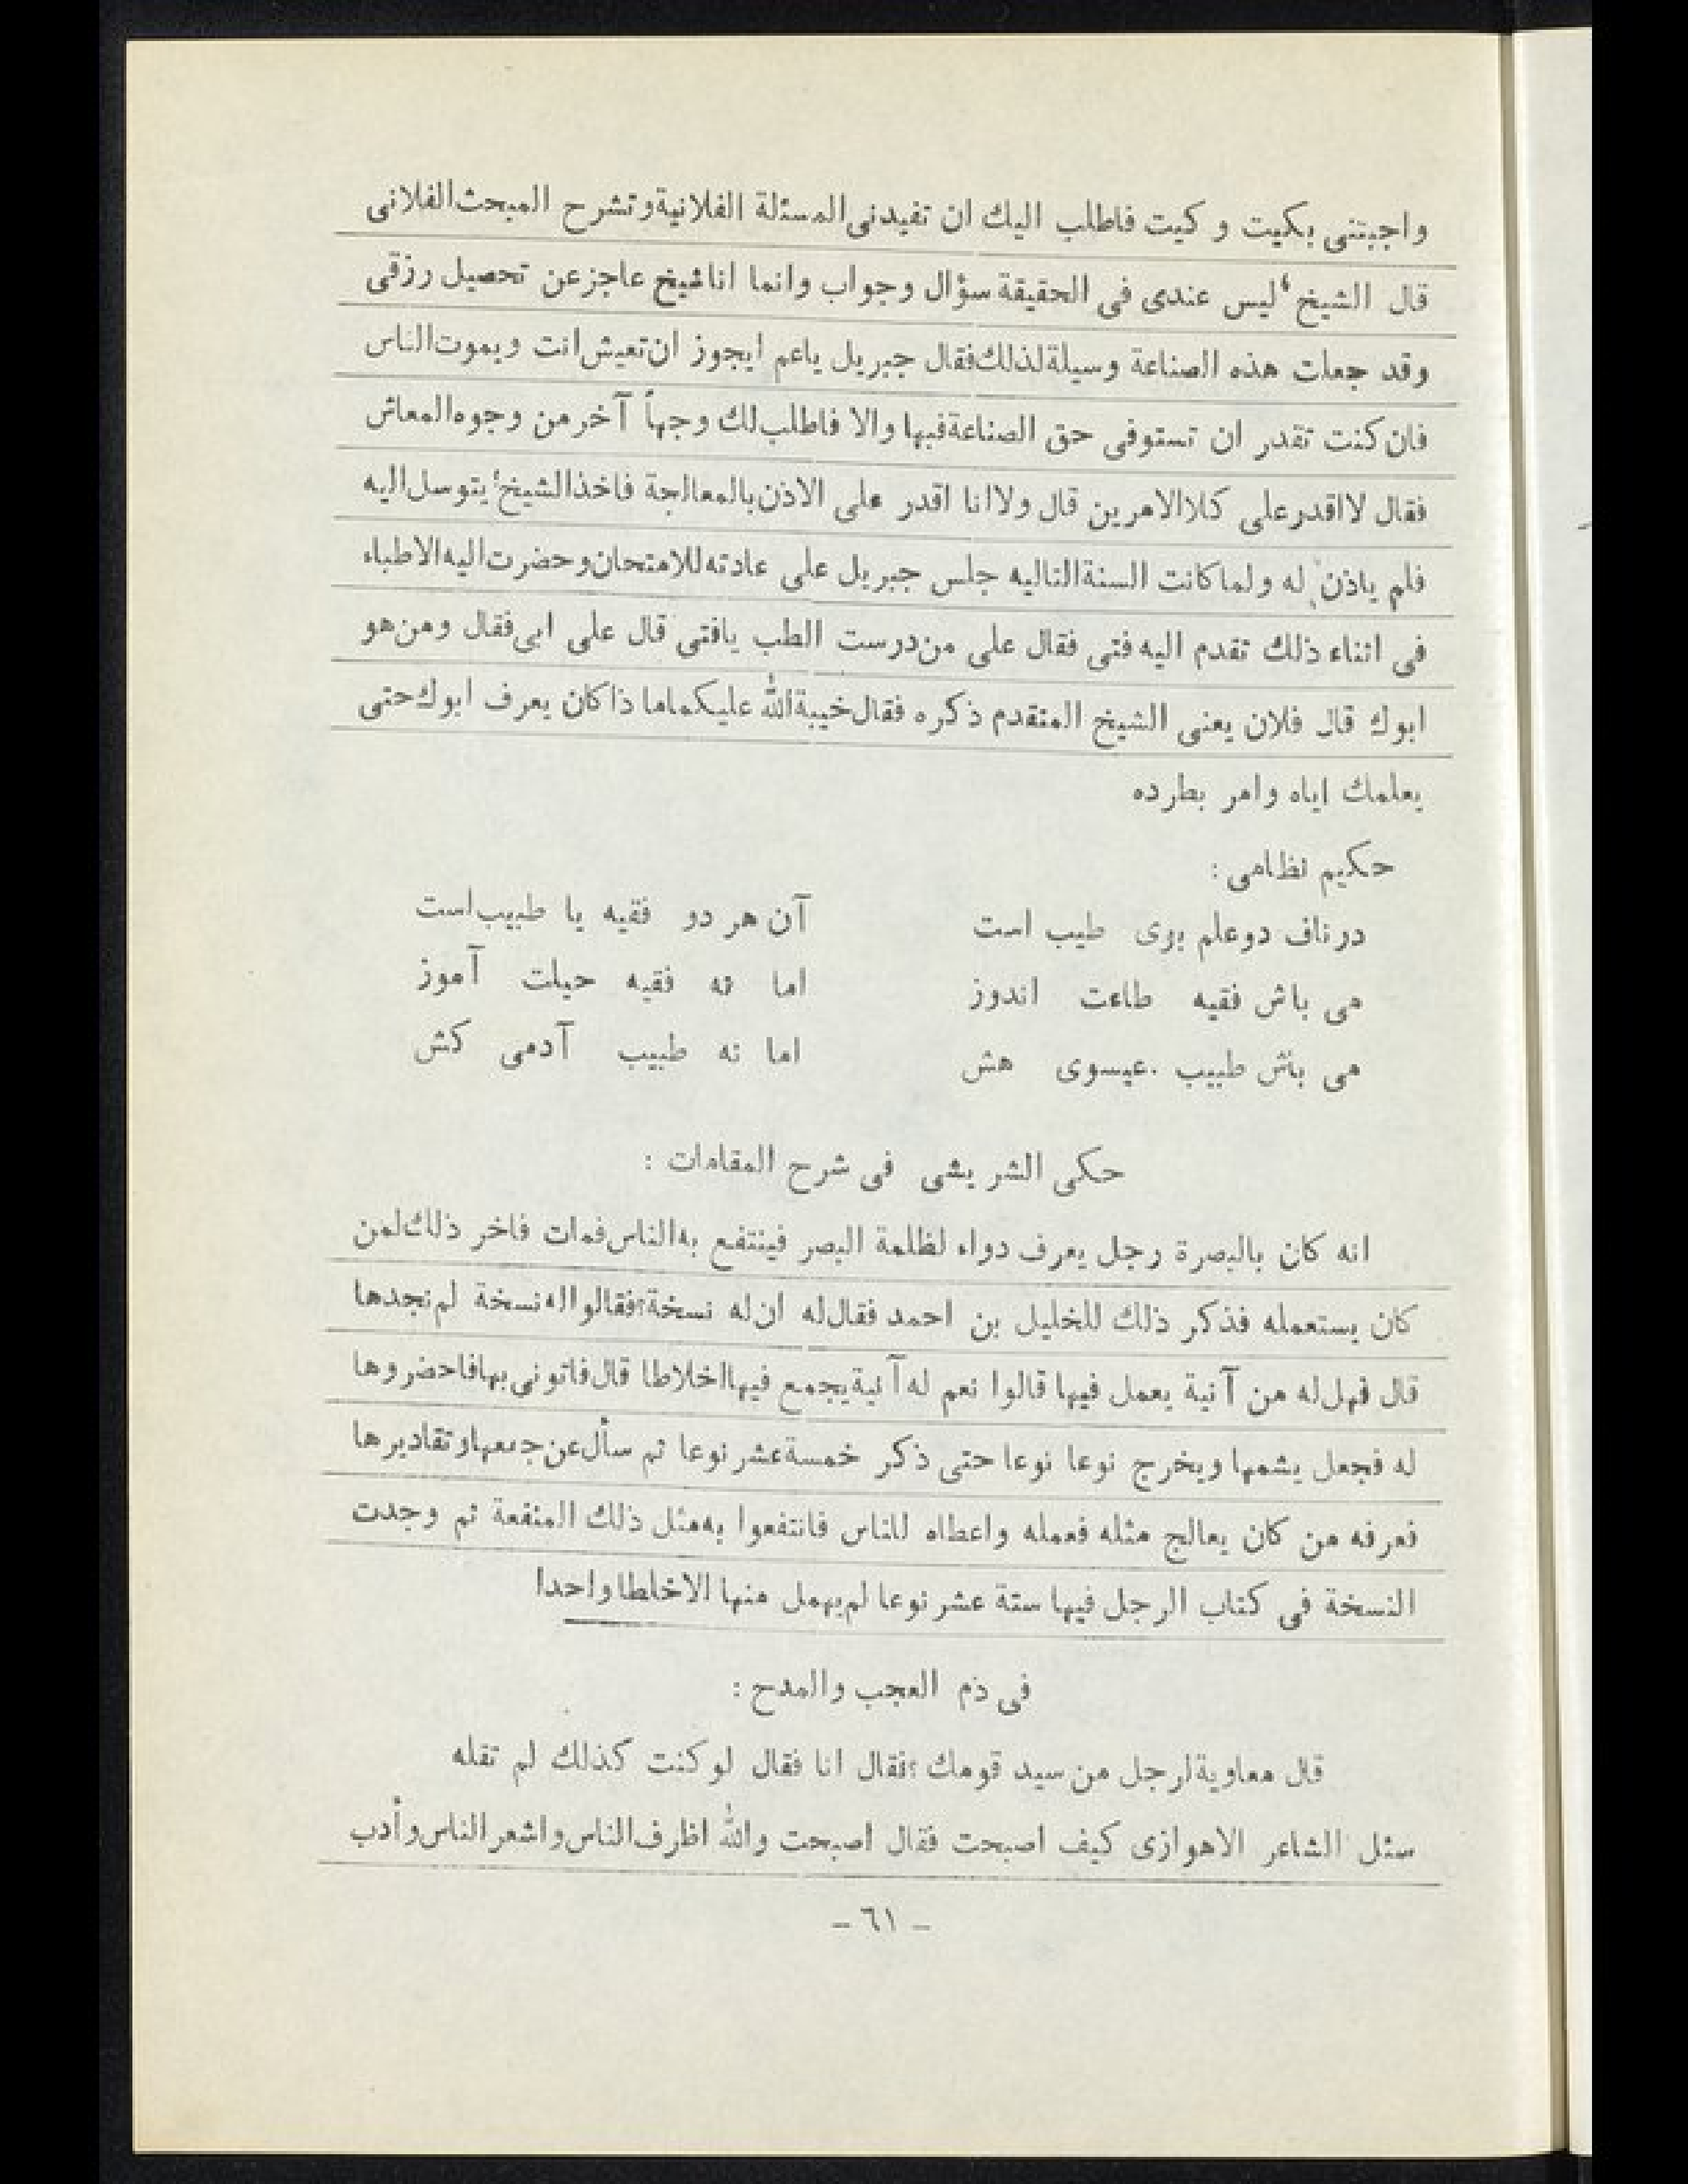 واجبتنی بکیت و کیت فاطلب الیك ان تفیدنی المسئلة الفلانیة و تشرح المبحث الفلانی
قال الشیخ لیس عندی فی الحقیقة سؤال وجواب وانما انا شیخ عاجز عن تحصیل رزقی
وقد جعلت هذه الصناعة وسیلة لذلك فقال جبریل یاعم ایجوز ان تعیش انت ویموت الناس
فان کنت تقدر ان تستوفی حق الصناعة فبها والا فاطلب لك وجهاً آخر من وجوه المعاش
فقال لا اقدر علی کلا الامرین قال ولا انا اقدر علی الاذن بالمعالجة فاخذ الشیخ یتوسل الیه
فلم یاذن له ولما کانت السنة التالیه جلس جبریل علی عادته للامتحان وحضرت الیه الاطباء
فی اثناء ذلك تقدم الیه فتی فقال علی من درست الطب یافتی قال علی ابی فقال ومن هو
ابوك قال فلان یعنی الشیخ المتقدم ذکره فقال خیبة الله علیکما ما ذا کان یعرف ابوك حتی
یعلمك ایاه وامر بطرده
حکیم نظامی :
در ناف دو علم بوی طیب است آن هر دو فقیه یا طبیب است
می باش فقیه طاعت اندوز اما نه فقیه حیلت آموز
می باش طبیب عیسوی هش اما نه طبیب آدمی کش
حکی الشریشی فی شرح المقامات :
انه کان بالبصرة رجل یعرف دواء لظلمة البصر فینتفع به الناس فمات فاخر ذلك لمن
کان یستعمله فذکر ذلك للخلیل بن احمد فقال له ان له نسخة؟ فقالوا له نسخة لم نجدها
قال فهل له من آنیة یعمل فیها قالوا نعم له آنیة یجمع فیها اخلاطا قال فاتونی بها فاحضروها
له فجعل یشمها ویخرج نوعا نوعا حتی ذکر خمسة عشر نوعا ثم سأل عن جمعها وتقادیرها
فعرفه من کان یعالج مثله فعمله واعطاه للناس فانتفعوا به مثل ذلك المنفعة ثم وجدت
النسخة فی کتاب الرجل فیها ستة عشر نوعا لم یهمل منها الاخلطا واحدا
فی ذم العجب والمدح :
قال معاویة لرجل من سید قومك ؟ فقال انا فقال لو کنت کذلك لم تقله
سئل الشاعر الاهوازی کیف اصبحت فقال اصبحت والله اظرف الناس واشعر الناس وأدب
– ٦١ –